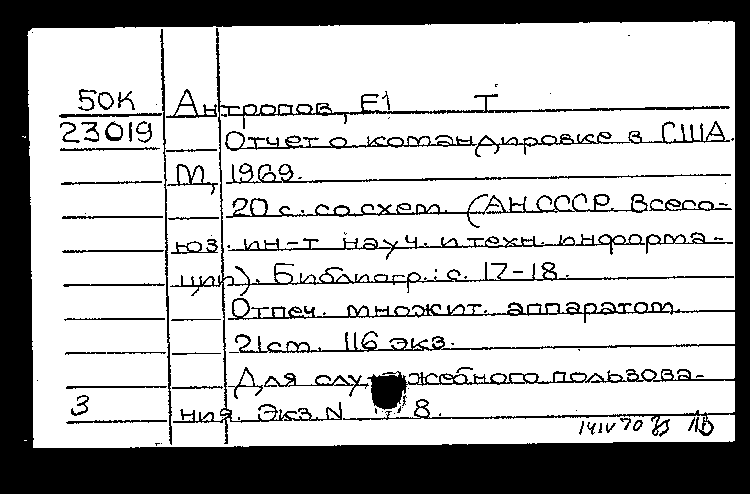 50К Антропов, Е1 Т
23019 Отчет о командировке в США.
М, 1969.
20 с. со схем. (АН СССР. Всесо-
юз. ин-т науч. и техн. информа-
ции). Библиогр.: с. 17-18.
Отпеч. множит. аппаратом.
21 ст. 116 экз.
Для служебного пользова-
3 ния. Экз. N 8.
14 IV 70